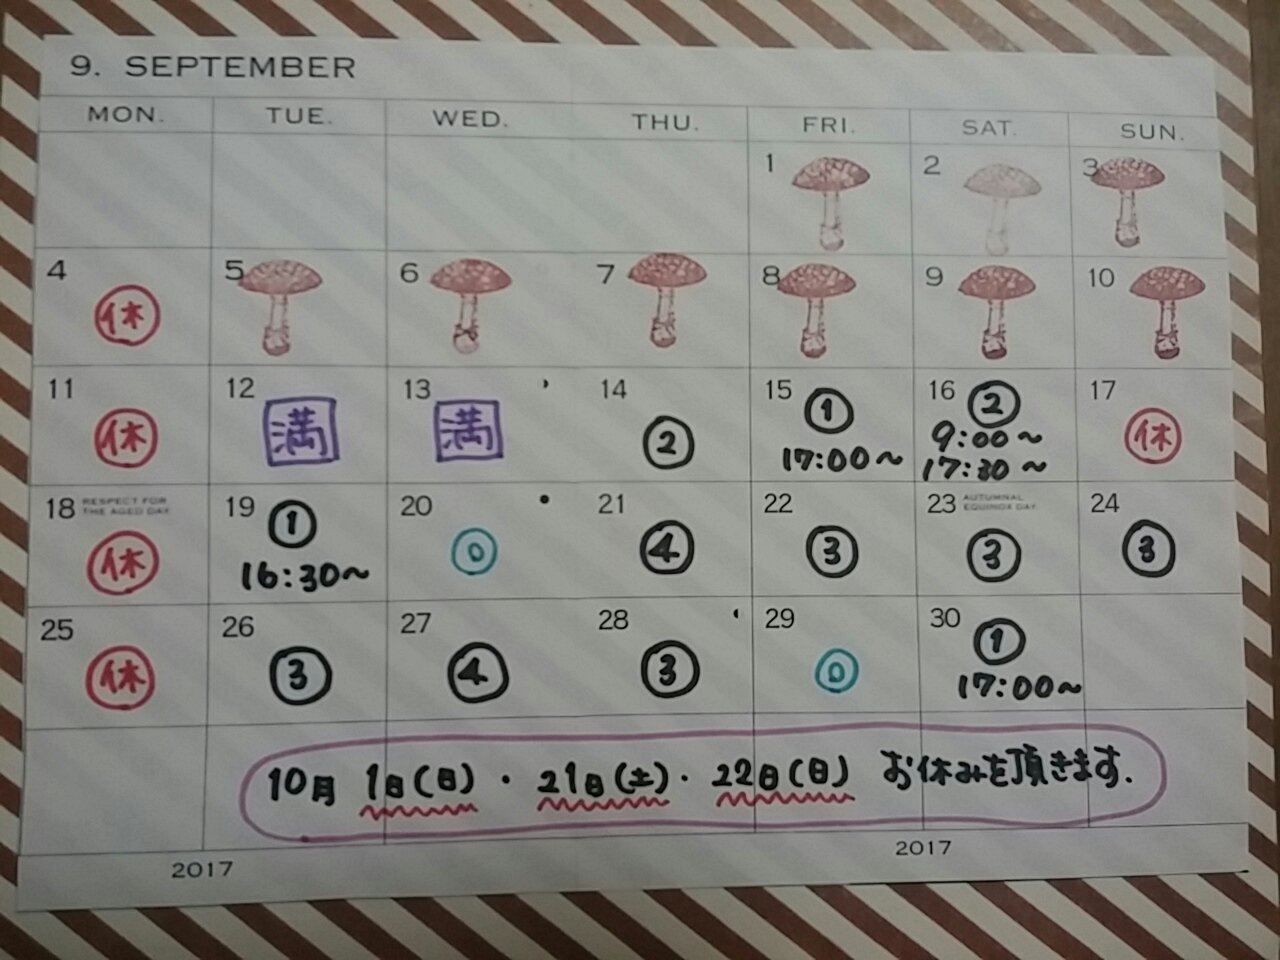 9. SEPTEMBER
MON. TUE. WED. THU. FRI. SAT. SUN.
1 2 3
4 休 5 6 7 8 9 10
11 休 12 満 13 満 14 ② 15 ① 17:00～ 16 ② 9:00～ 17:30～ 17 休
18 RESPECT FOR THE AGED DAY 休 19 ① 16:30～ 20 0 21 ④ 22 ③ 23 AUTUMNAL EQUINOX DAY ③ 24 ③
25 休 26 ③ 27 ④ 28 ③ 29 0 30 ① 17:00～
10月 1日(日)・21日(土)・22日(日) お休みを頂きます.
2017 2017